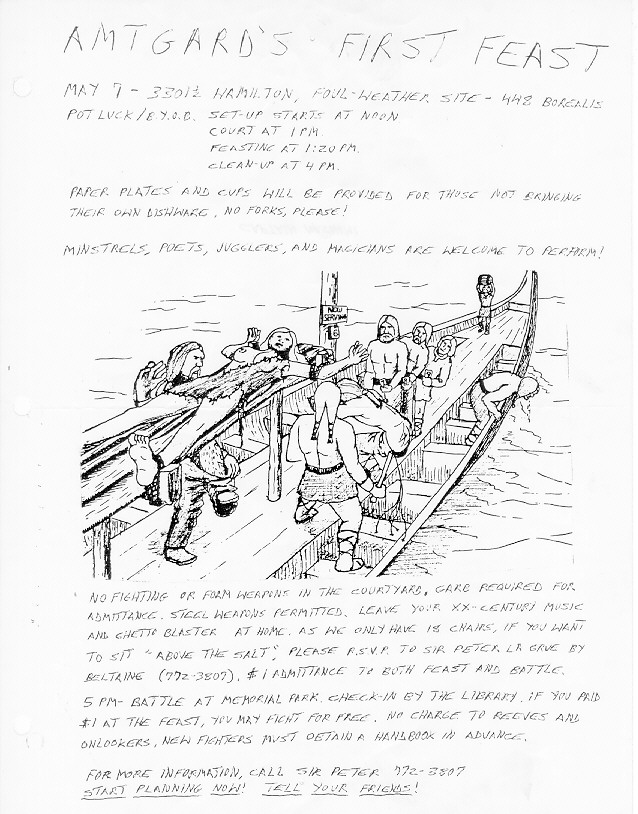 AMTGARD'S FIRST FEAST
MAY 7 - 3301½ HAMILTON, FOUL-WEATHER SITE - 448 BOREALIS
POT LUCK/B.Y.O.B. SET-UP STARTS AT NOON
COURT AT 1 PM.
FEASTING AT 1:20 PM.
CLEAN-UP AT 4 PM.
PAPER PLATES AND CUPS WILL BE PROVIDED FOR THOSE NOT BRINGING
THEIR OWN DISHWARE. NO FORKS, PLEASE!
MINSTRELS, POETS, JUGGLERS, AND MAGICIANS ARE WELCOME TO PERFORM!
NOW
SERVING
NO FIGHTING OR FORM WEAPONS IN THE COURTYARD. GARB REQUIRED FOR
ADMITTANCE. STEEL WEAPONS PERMITTED. LEAVE YOUR XX-CENTURY MUSIC
AND GHETTO BLASTER AT HOME. AS WE ONLY HAVE 18 CHAIRS, IF YOU WANT
TO SIT "ABOVE THE SALT", PLEASE R.S.V.P. TO SIR PETER LA GRUE BY
BELTAINE (772-3807). $1 ADMITTANCE TO BOTH FEAST AND BATTLE.
5 PM- BATTLE AT MEMORIAL PARK. CHECK-IN BY THE LIBRARY. IF YOU PAID
$1 AT THE FEAST, YOU MAY FIGHT FOR FREE. NO CHARGE TO REEVES AND
ONLOOKERS. NEW FIGHTERS MUST OBTAIN A HANDBOOK IN ADVANCE.
FOR MORE INFORMATION, CALL SIR PETER 772-3807
START PLANNING NOW! TELL YOUR FRIENDS!